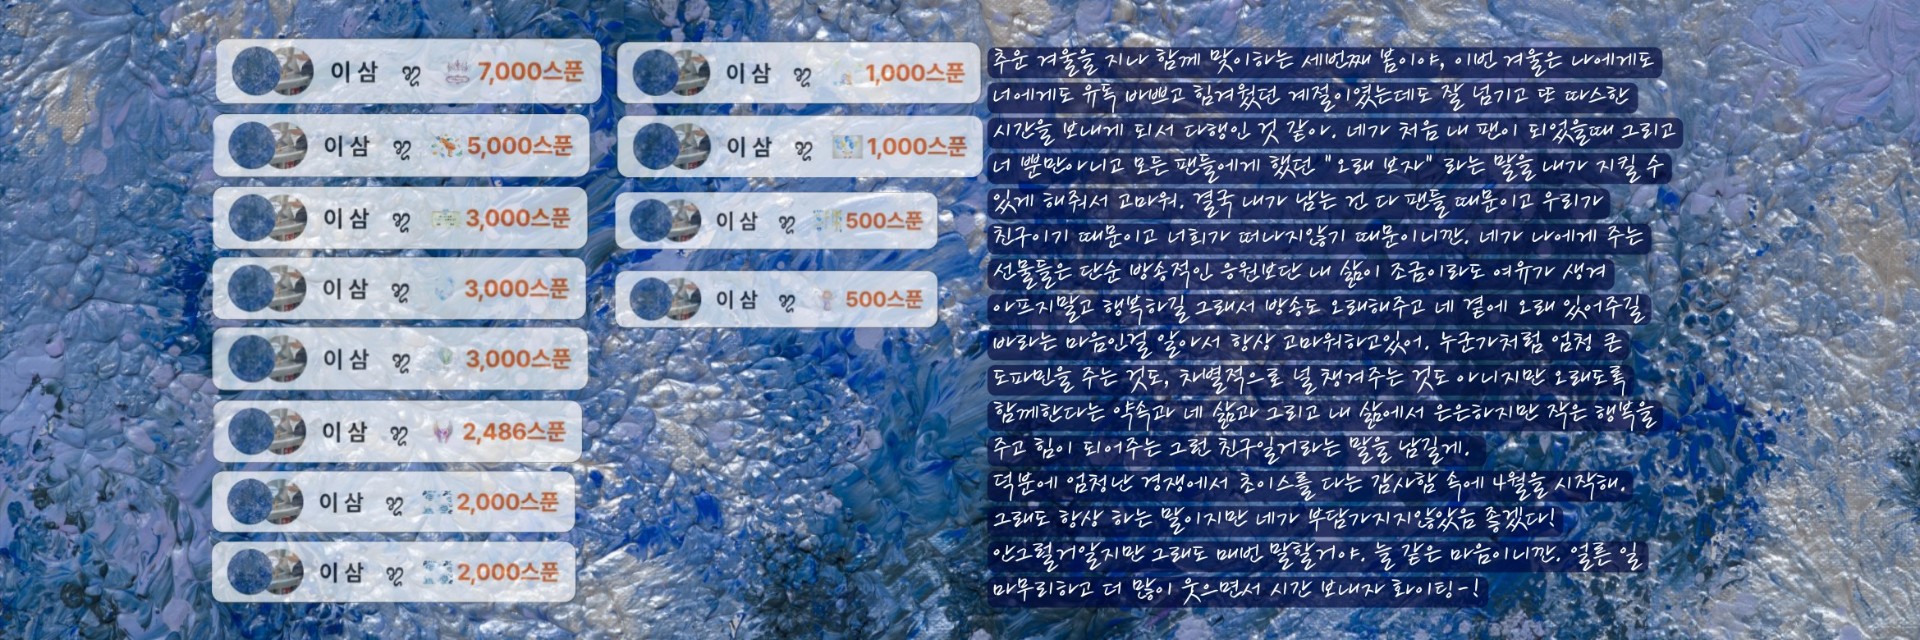 이 삼 7,000스푼
이 삼 5,000스푼
이 삼 3,000스푼
이 삼 3,000스푼
이 삼 3,000스푼
이 삼 2,486스푼
이 삼 2,000스푼
이 삼 2,000스푼
이 삼 1,000스푼
이 삼 1,000스푼
이 삼 500스푼
이 삼 500스푼
추운 겨울을 지나 함께 맞이하는 세번째 봄이야, 이번 겨울은 나에게도
너에게도 유독 바쁘고 힘겨웠던 계절이였는데도 잘 넘기고 또 따스한
시간을 보내게 되서 다행인 것 같아. 네가 처음 내 팬이 되었을때 그리고
너 뿐만아니고 모든 팬들에게 했던 "오래 보자" 라는 말을 내가 지킬 수
있게 해줘서 고마워. 결국 내가 남는 건 다 팬들 때문이고 우리가
친구이기 때문이고 너희가 떠나지않기 때문이니깐. 네가 나에게 주는
선물들은 단순 방송적인 응원보단 내 삶이 조금이라도 여유가 생겨
아프지말고 행복하길 그래서 방송도 오래해주고 네 곁에 오래 있어주길
바라는 마음인걸 알아서 항상 고마워하고있어. 누군가처럼 엄청 큰
도파민을 주는 것도, 차별적으로 널 챙겨주는 것도 아니지만 오래도록
함께한다는 약속과 네 삶과 그리고 내 삶에서 은은하지만 작은 행복을
주고 힘이 되어주는 그런 친구일거라는 말을 남길게.
덕분에 엄청난 경쟁에서 초이스를 다는 감사함 속에 4월을 시작해.
그래도 항상 하는 말이지만 네가 부담가지지않았음 좋겠다!
안그럴거알지만 그래도 매번 말할거야. 늘 같은 마음이니깐. 얼른 일
마무리하고 더 많이 웃으면서 시간 보내자 화이팅-!